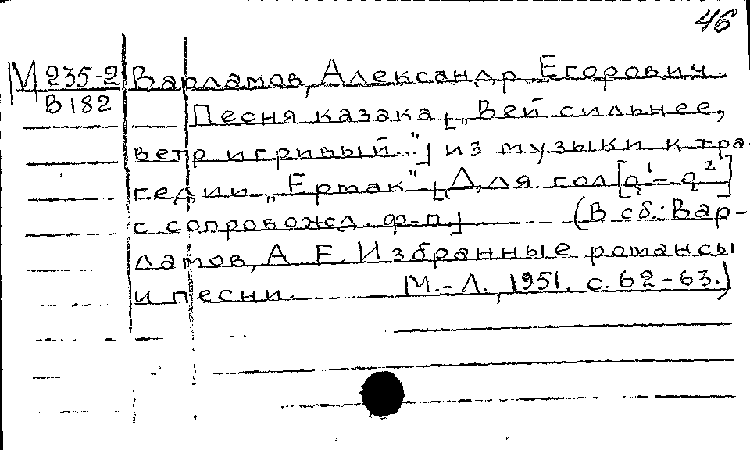 46
М 235-2 Варламов, Александр Егорович
В 182
Песня казака [„Вей сильнее,
ветр игривый..."] из музыки к тра-
гедии „Ермак" [Для гол [g¹ – g²]
с сопровожд. ф-п.] (В сб.: Вар-
ламов, А. Е. Избранные романсы
и песни. М.-Л., 1951. с. 62-63.)